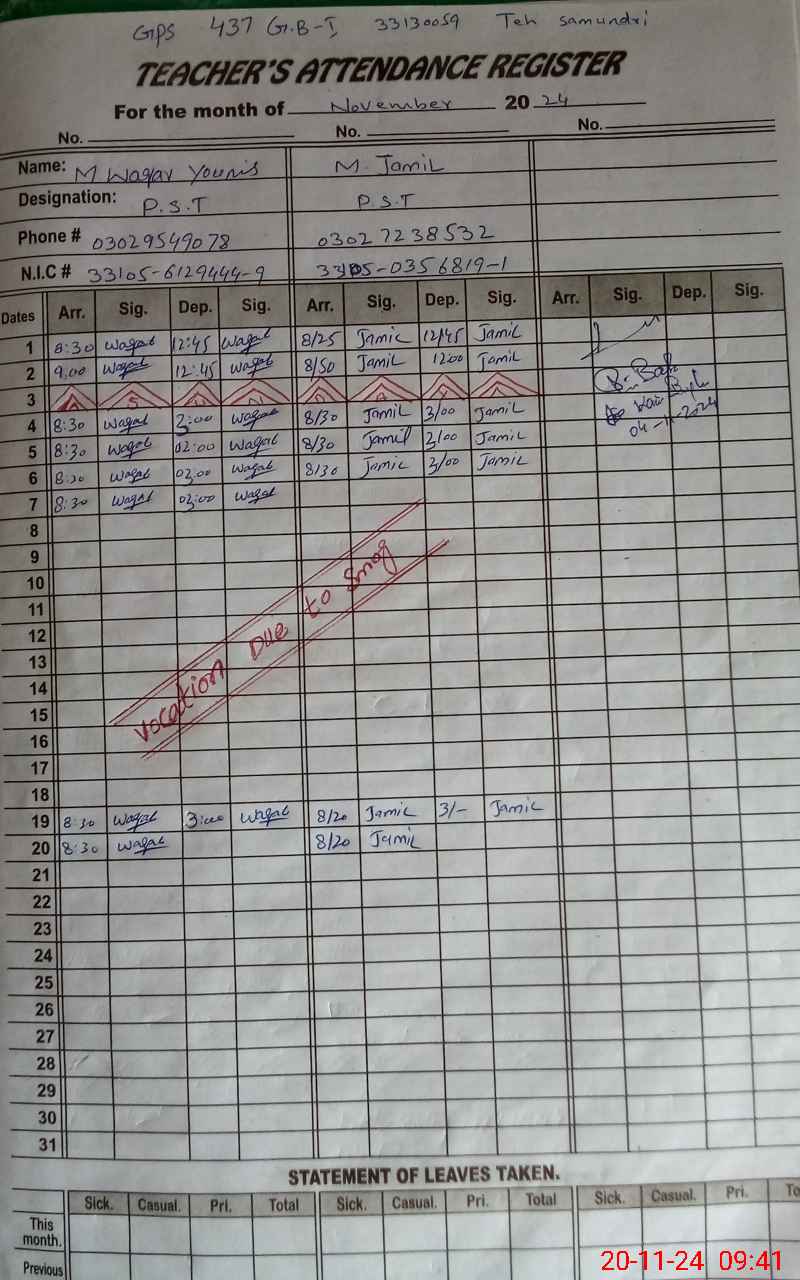 GPS 437 G.B-I 33130059 Teh Samundri
TEACHER'S ATTENDANCE REGISTER
For the month of November 2024
No. No. No.
Name: M Waqar Younis M. Jamil
Designation: P.S.T P.S.T
Phone # 03029549078 03027238532
N.I.C # 33105-6129444-9 33105-0356819-1
Dates Arr. Sig. Dep. Sig. Arr. Sig. Dep. Sig. Arr. Sig. Dep. Sig.
1 8:30 Waqar 12:45 Waqar 8/25 Jamil 12/45 Jamil
2 9.00 Waqar 12:45 Waqar 8/50 Jamil 12:00 Jamil
3 S U N D A Y
4 8:30 Waqar 3:00 Waqar 8/30 Jamil 3/00 Jamil
04-11-2024
5 8:30 Waqar 03:00 Waqar 8/30 Jamil 3/00 Jamil
6 8:30 Waqar 03:00 Waqar 8/30 Jamil 3/00 Jamil
7 8:30 Waqar 03:00 Waqar
8
9
10
11
12
13
14
Vocation Due to Smog
15
16
17
18
19 8:30 Waqar 3:00 Waqar 8/20 Jamil 3/- Jamil
20 8:30 Waqar 8/20 Jamil
21
22
23
24
25
26
27
28
29
30
31
STATEMENT OF LEAVES TAKEN.
Sick. Casual. Pri. Total Sick. Casual. Pri. Total Sick. Casual. Pri. To
This
month.
Previous
20-11-24 09:41